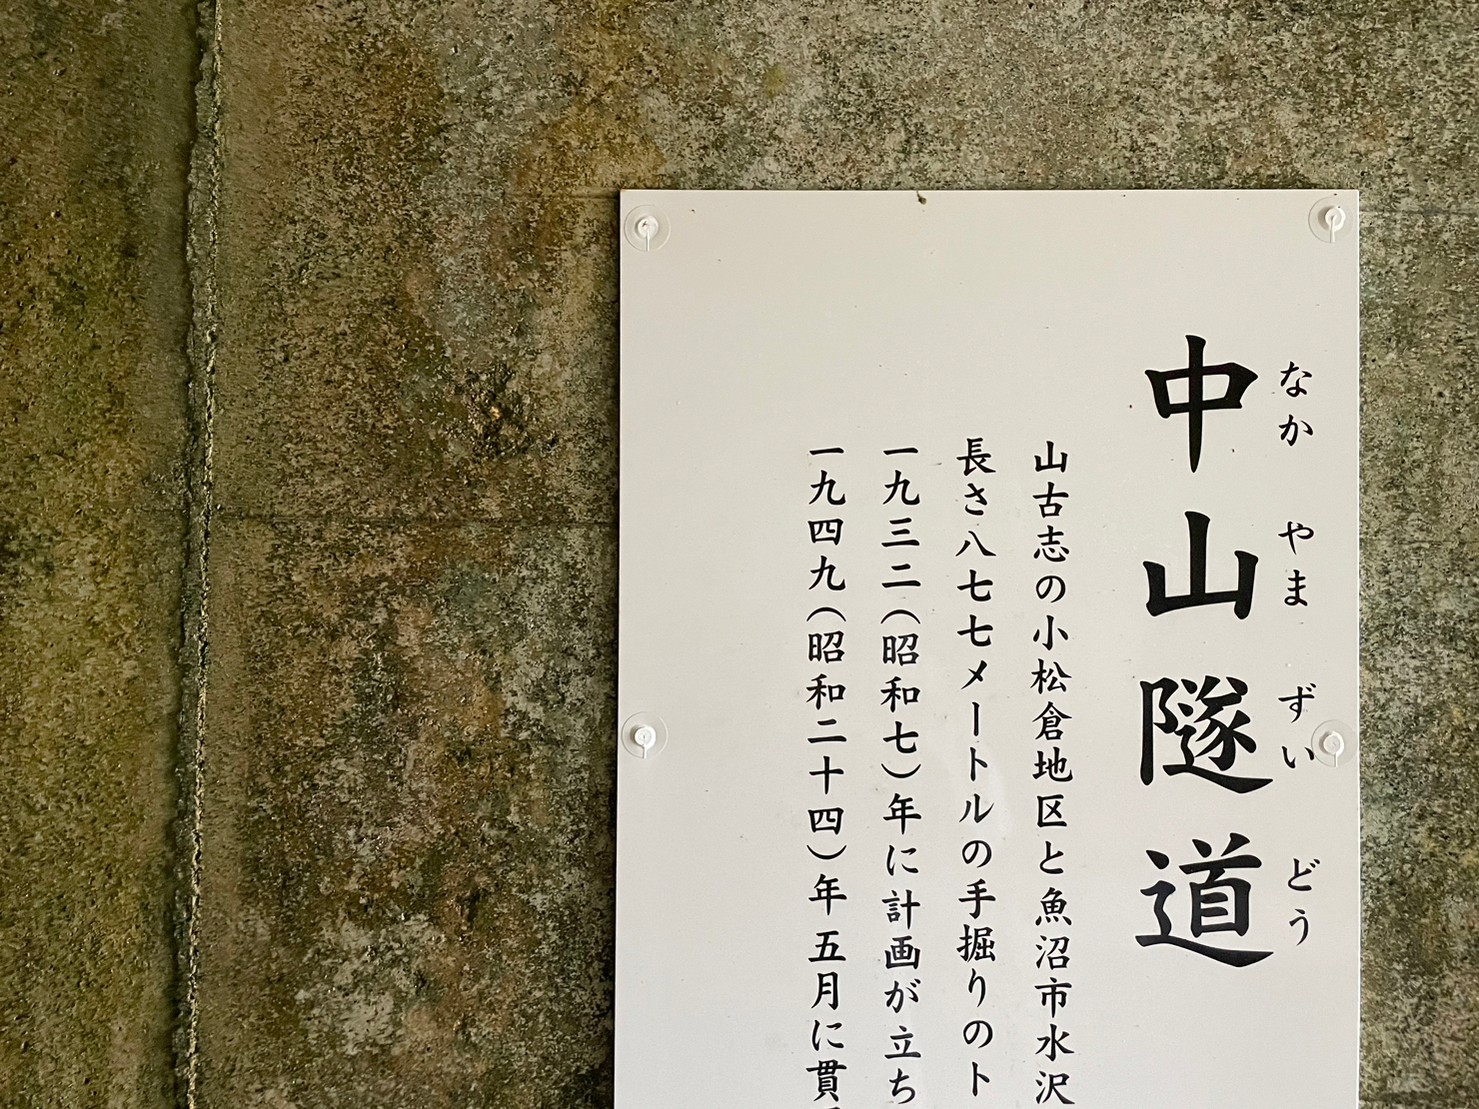 中山隧道
なか やま ずい どう
山古志の小松倉地区と魚沼市水沢
長さ八七七メートルの手掘りのト
一九三二(昭和七)年に計画が立ち
一九四九(昭和二十四)年五月に貫